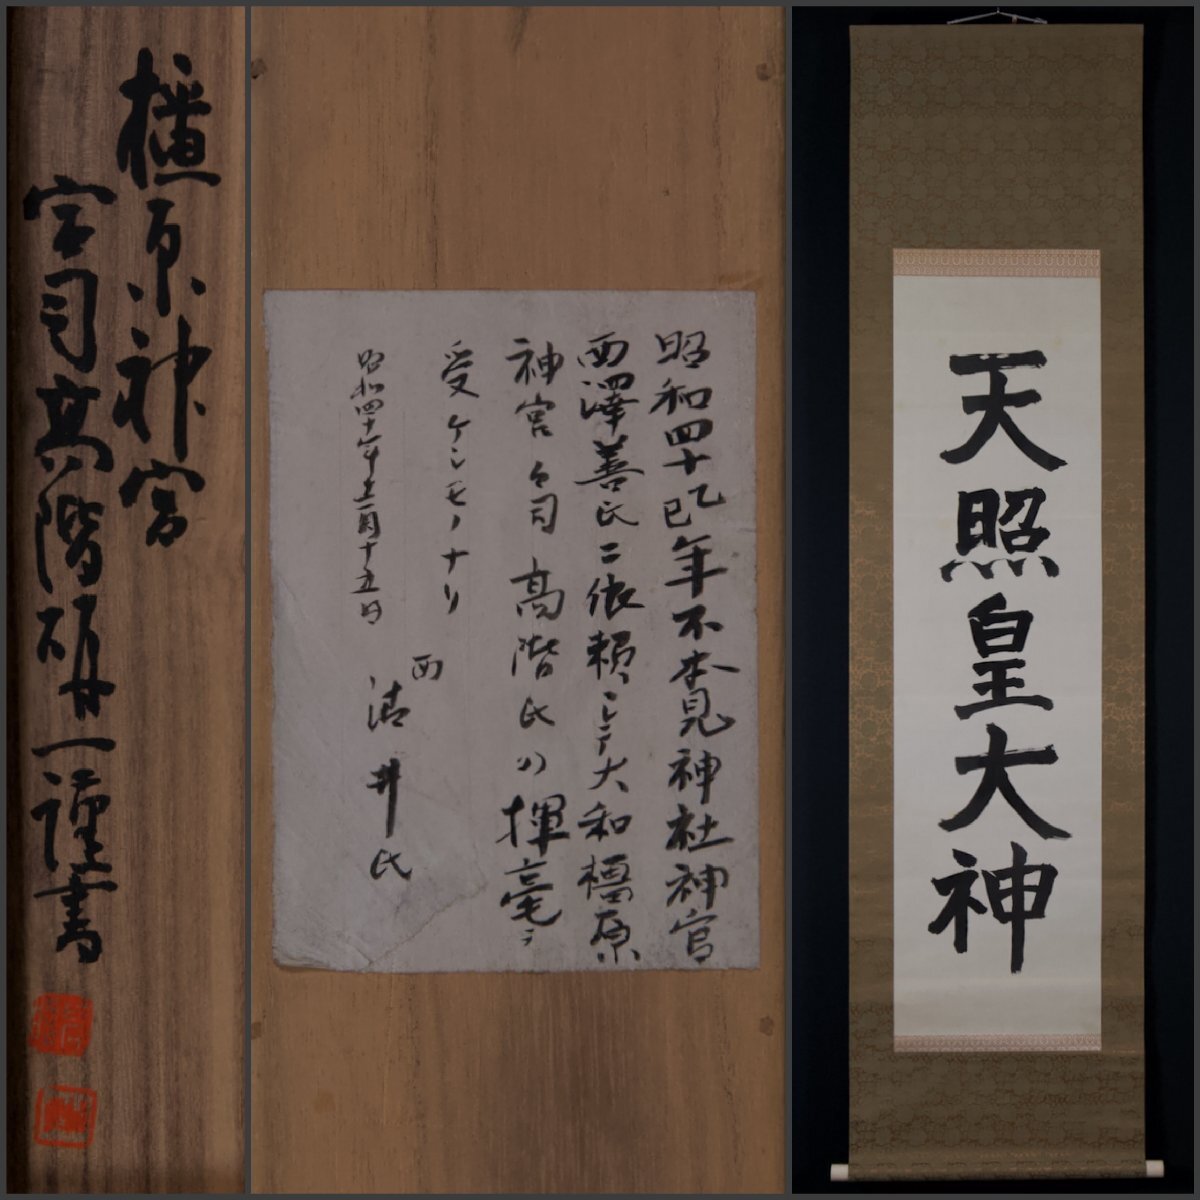 橿原神宮
宮司高階研一謹書
昭和四十乙巳年不本見神社神官
西澤善氏ニ依頼シテ大和橿原
神宮々司高階氏ノ揮毫ヲ
受ケシモノナリ
昭和四十年十二月十五日
西
清井氏
天照皇大神